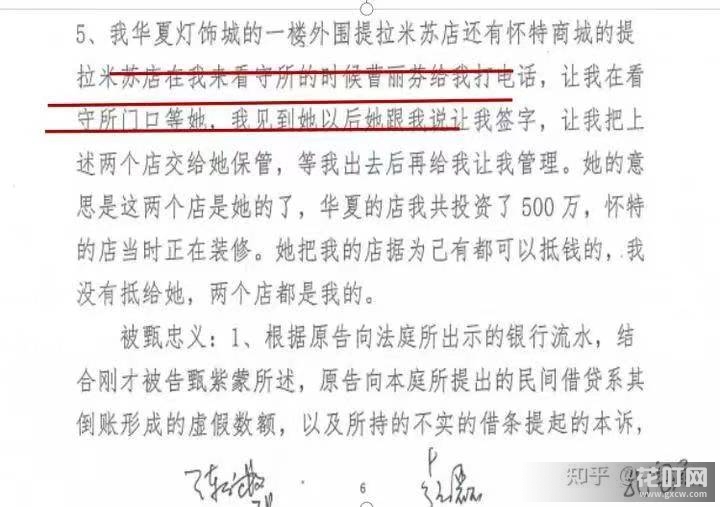 5、我华夏灯饰城的一楼外围提拉米苏店还有怀特商城的提
拉米苏店在我来看守所的时候曹丽芬给我打电话，让我在看
守所门口等她，我见到她以后她跟我说让我签字，让我把上
述两个店交给她保管，等我出去后再给我让我管理。她的意
思是这两个店是她的了，华夏的店我共投资了 500 万，怀特
的店当时正在装修。她把我的店据为己有都可以抵钱的，我
没有抵给她，两个店都是我的。
被甄忠义：1、根据原告向法庭所出示的银行流水，结
合刚才被告甄紫蒙所述，原告向本庭所提出的民间借贷系其
倒账形成的虚假数额，以及所持的不实的借条提起的本诉，
6
知乎
花叮网
www.gxcw.com